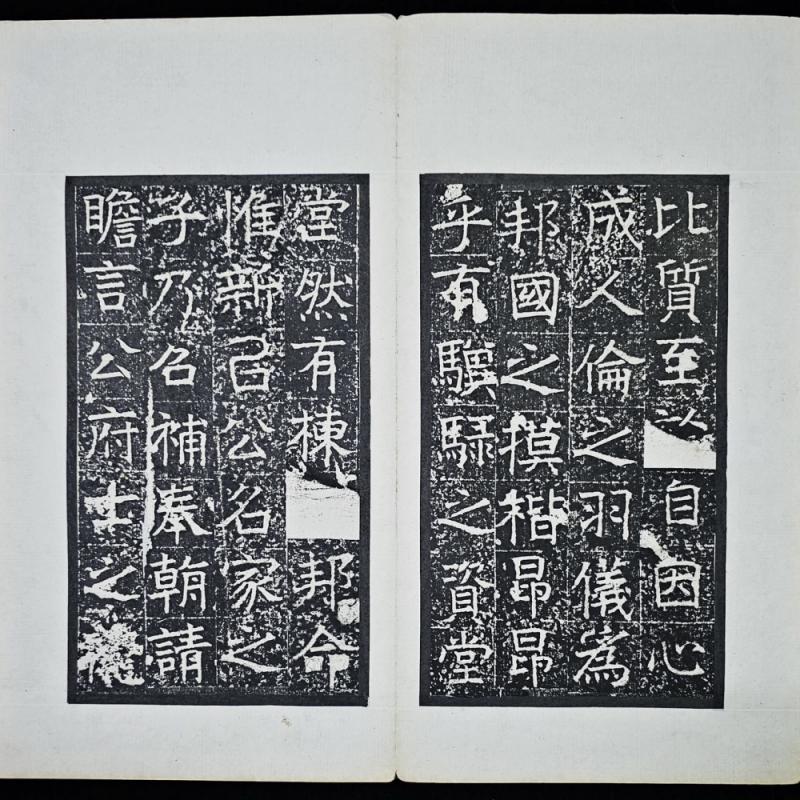 比質至以自因心
成人倫之羽儀為
邦國之摸楷昂昂
乎有驥騄之資堂
堂然有棟邦命
惟新公名家之
子乃召補奉朝請
瞻言公府士之